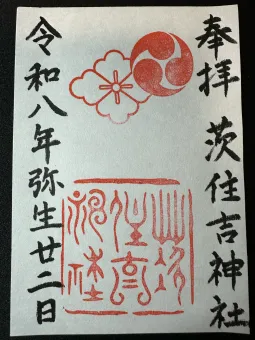 奉拝 茨住吉神社
茨住吉神社
令和八年弥生廿二日